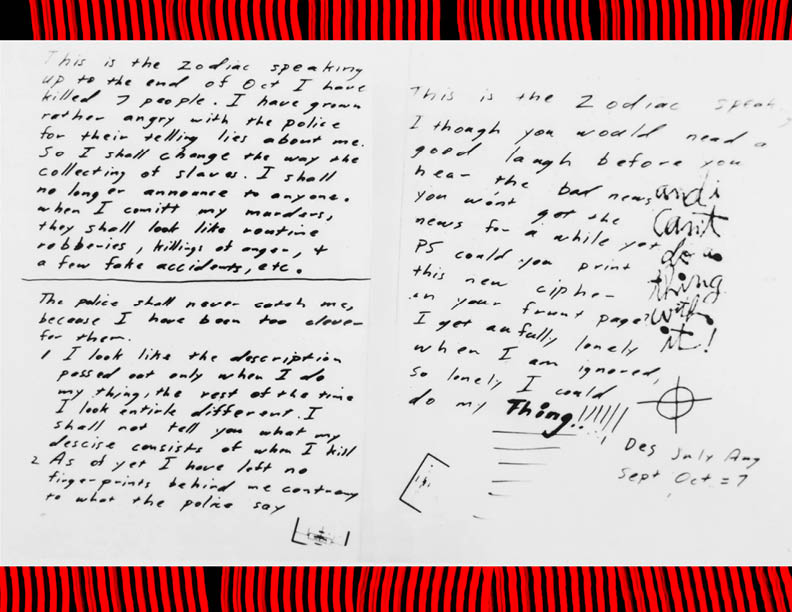 This is the Zodiac speaking
up to the end of Oct I have
killed 7 people. I have grown
rather angry with the police
for their telling lies about me.
So I shall change the way the
collecting of slaves. I shall
no longer announce to anyone.
when I comitt my murders,
they shall look like routine
robberies, killings of anger, +
a few fake accidents, etc.
The police shall never catch me,
because I have been too clever
for them.
1 I look like the description
passed out only when I do
my thing, the rest of the time
I look entirle different. I
shall not tell you what my
descise consists of when I kill
2 As of yet I have left no
fingerprints behind me contrary
to what the police say
This is the Zodiac speaking
I though you would need a
good laugh before you
hear the bad news
you won't get the
news for a while yet
PS could you print
this new cipher
on your frunt page?
I get awfully lonely
when I am ignored,
So lonely I could
do my Thing!!!!!!
and i
can't
do a
thing
with
it!
Des July Aug
Sept Oct = 7